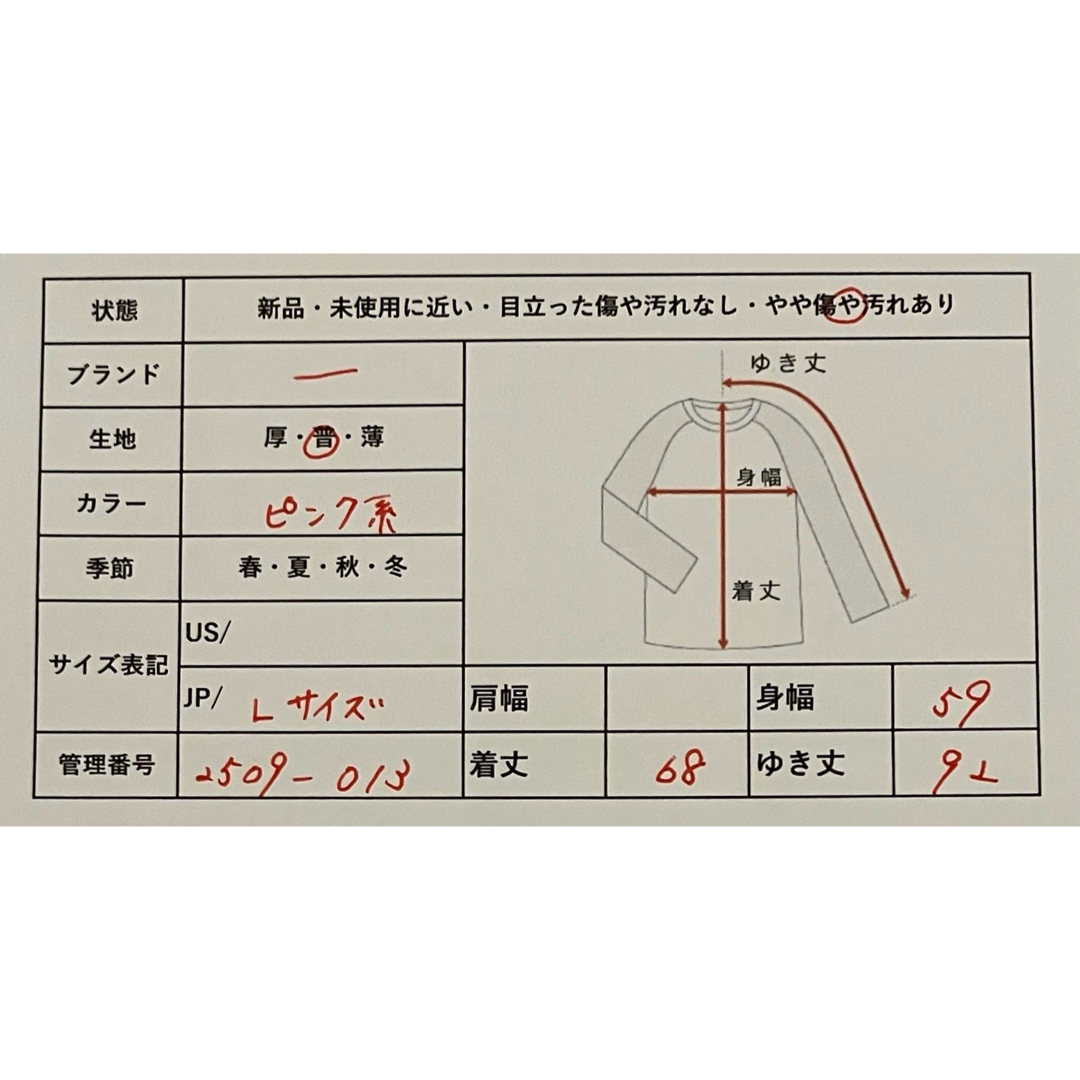 状態 新品・未使用に近い・目立った傷や汚れなし・やや傷や汚れあり
ブランド ー
生地 厚・普・薄
カラー ピンク系
季節 春・夏・秋・冬
ゆき丈
身幅
着丈
サイズ表記
US/
JP/ Lサイズ
肩幅
身幅 59
管理番号 2509-013
着丈 68
ゆき丈 92